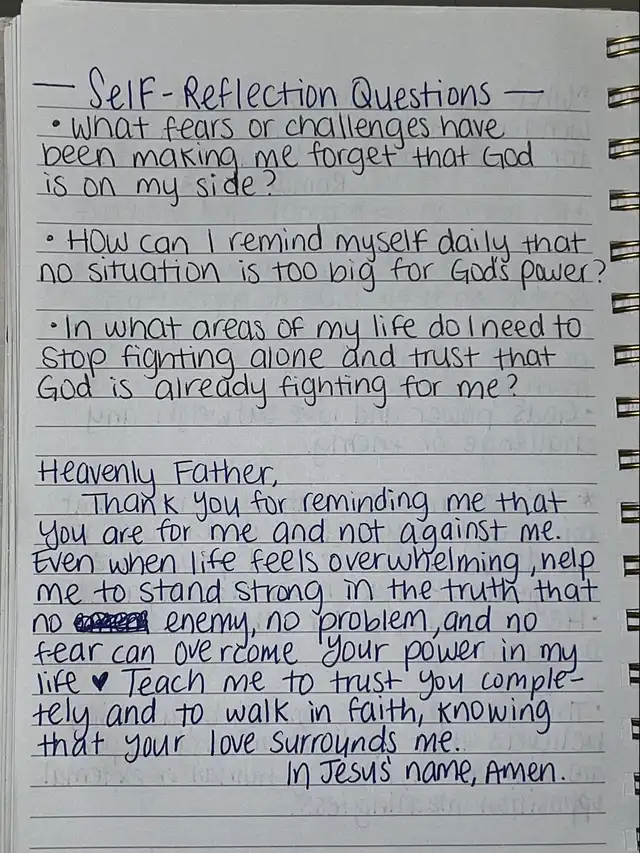 — Self-Reflection Questions —
• What fears or challenges have
been making me forget that God
is on my side?
• How can I remind myself daily that
no situation is too big for God's power?
• In what areas of my life do I need to
stop fighting alone and trust that
God is already fighting for me?
Heavenly Father,
Thank you for reminding me that
you are for me and not against me.
Even when life feels overwhelming, help
me to stand strong in the truth that
no enemy, no problem, and no
fear can overcome your power in my
life ♥ Teach me to trust you comple-
tely and to walk in faith, knowing
that your love surrounds me.
In Jesus' name, Amen.